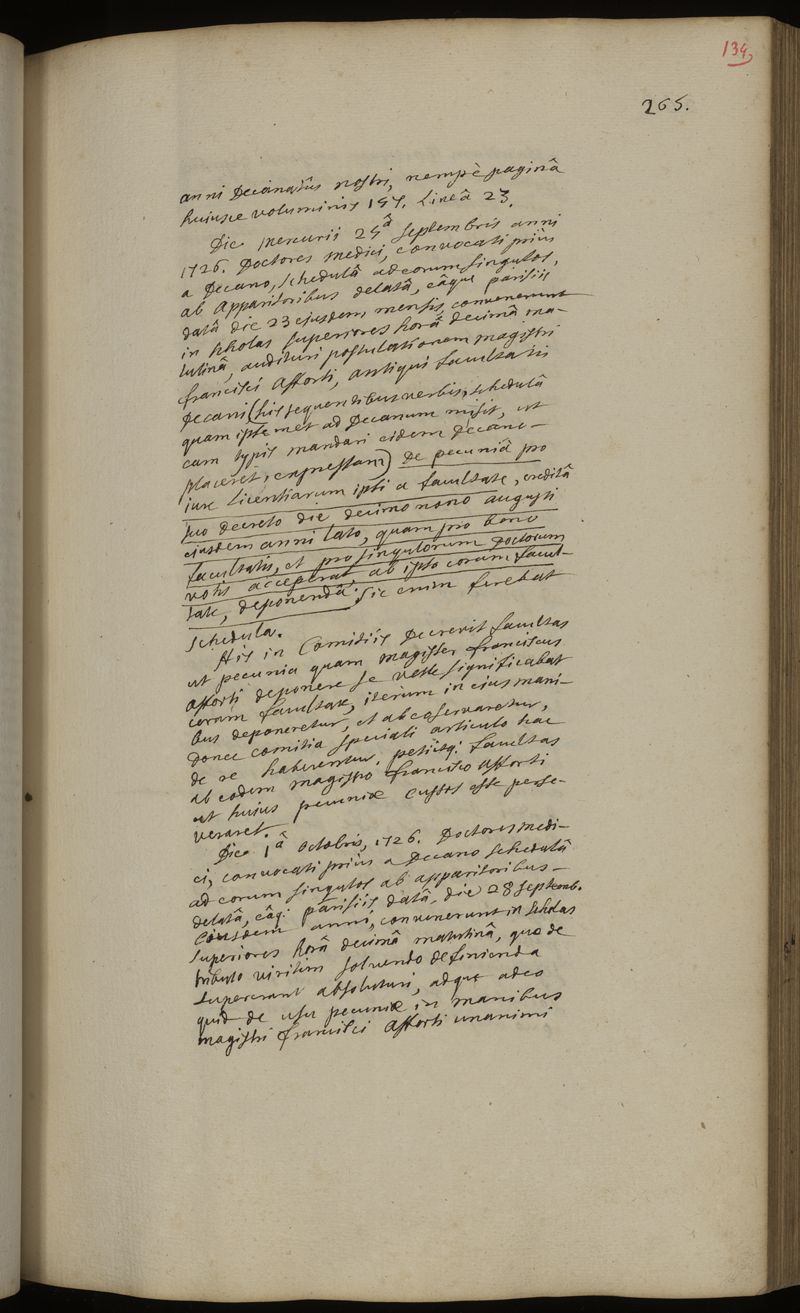 134
265.
anni Decanatûs nostri, nempè paginâ
huiusce voluminis 197. Lineâ 23.
Die mercurii 25â septembris anni
1726. Doctores medici, convocati priùs
a Decano, schedulâ ad eorum singulos,
ab Apparitoribus delatâ, eâque parisiis
datâ die 23 ejusdem, mensis, convenerunt
in scholas superiores horâ decimâ ma-
tutinâ, audituri postulationem magistri
francisci Afforti, antiqui facultatis
Decani (his sequentibus verbis, schedulâ
quam ipsemet ad Decanum misit, ut
eam typis mandari eidem Decano-
placeret, expressam) De pecuniâ pro
iure Licentiarum ipsi a facultate, creditâ
suo decreto die decimo nono augusti
ejusdem anni lato, quam pro bono
facultatis, et pro singulorum Doctorum
votis acceperat, ab ipso coram facul-
tate, deponendâ. Sic enim ferebat
schedula.
His in Comitiis Decrevit facultas
ut pecunia quam magister franciscus
Afforti deponere se velle significabat
coram facultate, iterum in ejus mani-
bus deponeretur, et ab eo servaretur,
Donec comitia speciali articulo hac
de re haberentur. petiitq; facultas
ab eodem magistro francisco Afforti
ut huius pecuniæ custos esse perse-
veraret.
Die 1â octobris, 1726. Doctores medi-
ci, convocati priùs a Decano schedulâ
ad eorum singulos ab apparitoribus-
delatâ, eâq; parisiis datâ, die 28 septemb.
Eiusdem anni, convenerunt in scholas
superiores horâ decimâ matutinâ, quæ de
tributo viritim solvendo definienda
supererant absoluturi, adque adeo
quid de usu pecuniæ in manibus
magistri francisci Afforti unanimi